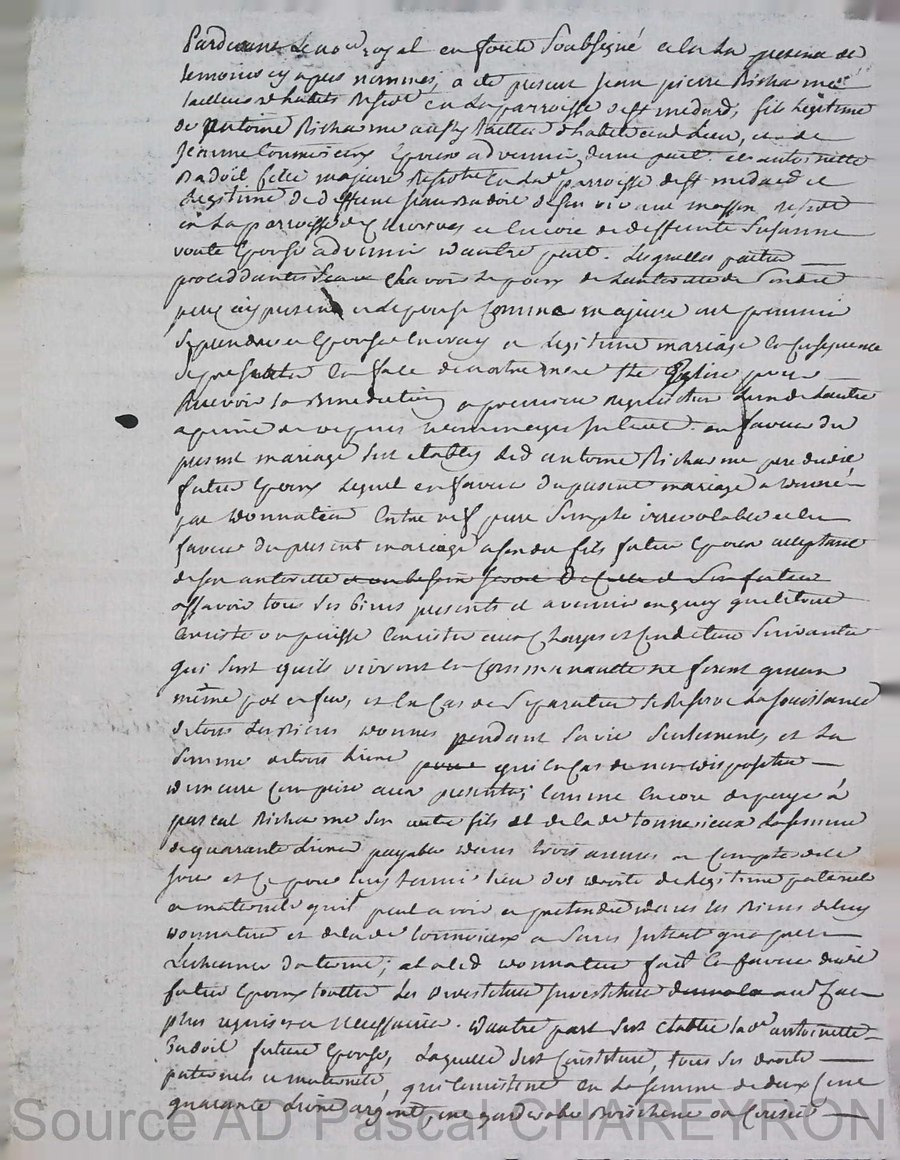 Pardevant Le no.re royal en foute soubsigné et en la presence des
temoins cy apres nommés, a eté present Jean pierre Richarme
tailleur d'habits Resid.t en La parroisse de st medard, fils Legitime
de antoine Richarme aussy tailleur d'habits aud Lieu, et de
Jeanne Tonnerieux Epoux advenir d'une part. et antoinette
Badoil fille majeure Resid.te en Lad.e parroisse de st medard et
Legitime de deffunt Jean Badoil de son vivant masson resid.t
en La parroisse de et encore de deffunte Suzanne
voute Epouse advenir d'autre part. Lesquelles parties
proceddantes scavoir Lepoux de Lautorité de sondit
pere icy present et Lepouse comme majeure ont promis
se prendre et Epouser en vray et Legitime mariage en consequence
se presenter en face de nostre mere ste Eglise pour
Recevoir la Benediction a premiere Requisition Lun de Lautre
a peine de en faveur du
present mariage sest etably led antoine Richarme pere dudit
futur Epoux Lequel en faveur du present mariage a donné
par donnation Entre vif pure simple irrevocable et en
faveur du present mariage a son dit fils futur Epoux acceptant
de son autorité
assavoir tous ses biens presents et avenir en quoy quils
Consiste ou puisse Consister aux Charges et Conditions suivantes
qui sont quils vivront en Communauté ne feront quun
même pot et feu, et en Cas de separation se Reserve La jouissance
de tous Les biens donnés pendant sa vie seulement, et La
somme de trois Livres pour qui en Cas de non disposition
demeure Comprise aux presentes; Comme Encore de payer à
pascal Richarme son autre fils et de lad.e tonnerieux La somme
de quarante Livres payable dans trois années a Compter de ce
jour et Ce pour luy tenir lieu des droits de Legitime paternel
et maternels quil peut avoir et pretendre dans les Biens deluy
donnateur et de lad.e Tonnerieux et sans Interest que par
; et aled donnateur fait en faveur dudit
futur Epoux touttes Les devestiture Investiture au Cas
plus requises et necessaires. D'autre part sest etablie lad.e antoinette
Badoil future Epouse, Laquelle sest Constituée, tous ses droits
paternels et maternels, qui Consistent en La somme de deux Cent
quarante Livres argent, une garderobe Bois chene ou Cerisié
Source AD Pascal CHAREYRON